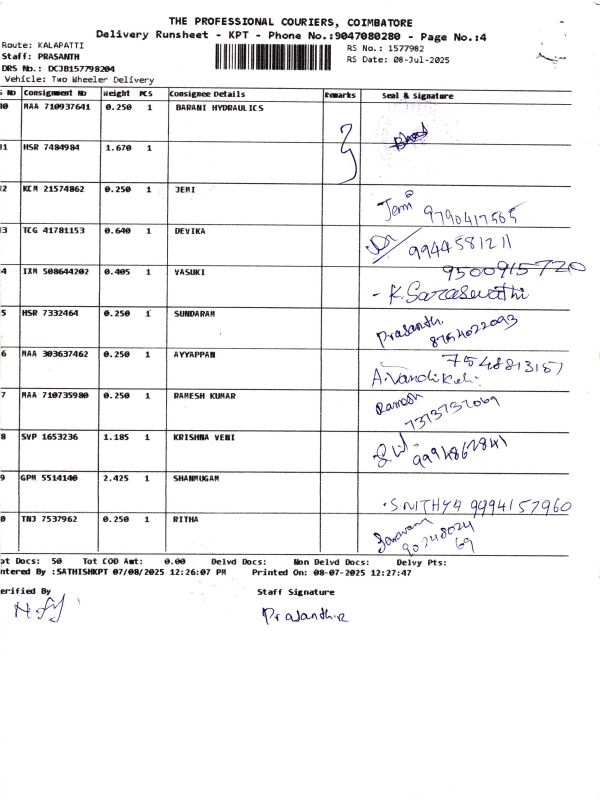 THE PROFESSIONAL COURIERS, COIMBATORE
Delivery Runsheet - KPT - Phone No.:9047080280 - Page No.:4
Route: KALAPATTI
RS No.: 1577982
Staff: PRASANTH
RS Date: 08-Jul-2025
DRS No.: DCJB157798204
Vehicle: Two Wheeler Delivery
S No Consignment No Weight PCS Consignee Details Remarks Seal & Signature
0 MAA 710937641 0.250 1 BARANI HYDRAULICS
1 HSR 7484984 1.670 1
2 KCM 21574862 0.250 1 JEMI
Jemi 9790417565
3 TCG 41781153 0.640 1 DEVIKA
9944581211
4 IXM 508644202 0.405 1 VASUKI
9500915720
- K. Saraswathi
5 HSR 7332464 0.250 1 SUNDARAM
Prasanth
8754022093
6 MAA 303637462 0.250 1 AYYAPPAN
7548813157
7 MAA 710735980 0.250 1 RAMESH KUMAR
Ramesh
7373737069
8 SVP 1653236 1.185 1 KRISHNA VENI
9994862841
9 GPM 5514140 2.425 1 SHANMUGAM
S.NITHYA 9994157960
0 TNJ 7537962 0.250 1 RITHA
Saravana
90248024
69
ot Docs: 50 Tot COD Amt: 0.00 Delvd Docs: Non Delvd Docs: Delvy Pts:
ntered By :SATHISHKPT 07/08/2025 12:26:07 PM Printed On: 08-07-2025 12:27:47
erified By Staff Signature
Prasanth.R